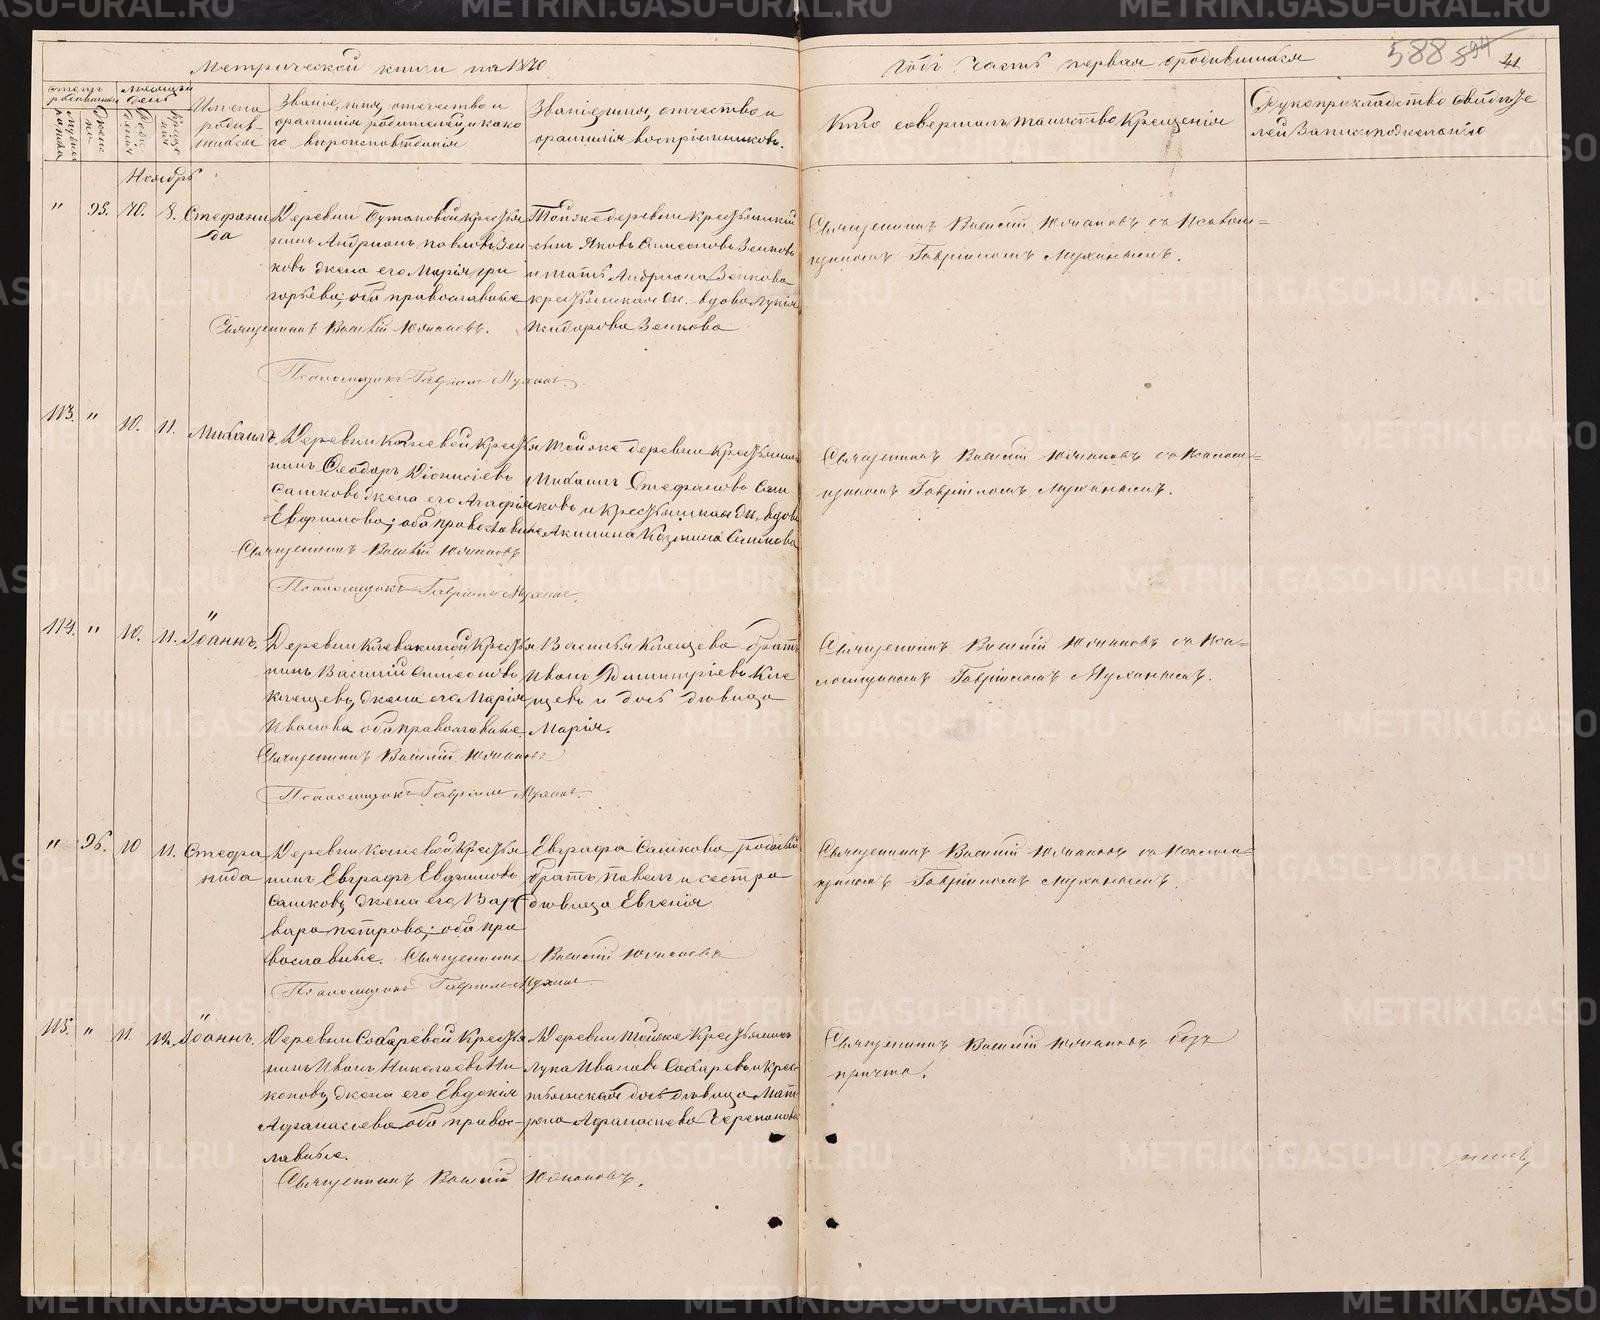 Метрической книги на 1870
Годъ Часть первая о родившихся
588
41
Имена родив-
шихся
Званіе, имя, отечество и
фамилія родителей, и како
го вѣроисповѣданія
Званіе, имя, отчество и
фамилія воспріемниковъ.
Кто совершалъ таинство Крещенія
Рукоприкладство свидѣте
лей Записи по желанію
Ноябрь
" 95. 10. 8. Стефани
да
Деревни Бутаковой Крестья
нинъ Андрианъ Павловъ Зен
ковъ жена его Марія Гри
горьева; оба православные
Священникъ Василій Юмановъ.
Псаломщикъ Гавріилъ Мухинъ.
Той же деревни Крестьянскій
сынъ Яковъ Симеоновъ Зенковъ
и мать Андриана Зенкова
крестьянская вдова Лукія
Исидорова Зенкова
Священникъ Василій Юмановъ съ Псалом=
щикомъ Гавріиломъ Мухинымъ.
113. " 10. 11. Михаилъ.
Деревни Коневой Крестья
нинъ Феодоръ Діонисіевъ
Сашковъ жена его Агафія
Евфимова; оба православные
Священникъ Василій Юмановъ
Псаломщикъ Гавріилъ Мухинъ.
Той же деревни Крестьянинъ
Михаилъ Стефановъ Саш
ковъ и Крестьянская вдова
Акилина Козмина Сашкова
Священникъ Василій Юмановъ съ Псалом=
щикомъ Гавріиломъ Мухинымъ.
114. " 10. 11. Іоаннъ.
Деревни Клевакиной Крестья
нинъ Василій Симеоновъ
Клещевъ, жена его Марія
Иванова оба православные.
Священникъ Василій Юмановъ
Псаломщикъ Гавріилъ Мухинъ.
Василья Клещева братъ
Иванъ Димитріевъ Кле
щевъ и дочь дѣвица
Марія.
Священникъ Василій Юмановъ съ Пса=
ломщикомъ Гавріиломъ Мухинымъ.
" 96. 10 11. Стефа
нида
Деревни Коневой Крестья
нинъ Евграфъ Евфимовъ
Сашковъ, жена его Вар
вара Петрова; оба пра
вославные. Священникъ Василій Юмановъ
Псаломщикъ Гавріилъ Мухинъ
Евграфа Сашкова родный
братъ Павелъ и сестра
дѣвица Евгенія
Священникъ Василій Юмановъ съ Псалом=
щикомъ Гавріиломъ Мухинымъ.
115. " 11. 12. Іоаннъ.
Деревни Сохаревой Крестья
нинъ Иванъ Николаевъ Ни
коновъ, жена его Евдокія
Афанасіева оба правос-
лавные.
Священникъ Василій Юмановъ.
Деревни той же Крестьянинъ
Лука Ивановъ Сохаревъ и Крес
тьянская дочь дѣвица Мат
рона Афанасіева Черепанова
Священникъ Василій Юмановъ безъ
причта.
METRIKI.GASO-URAL.RU